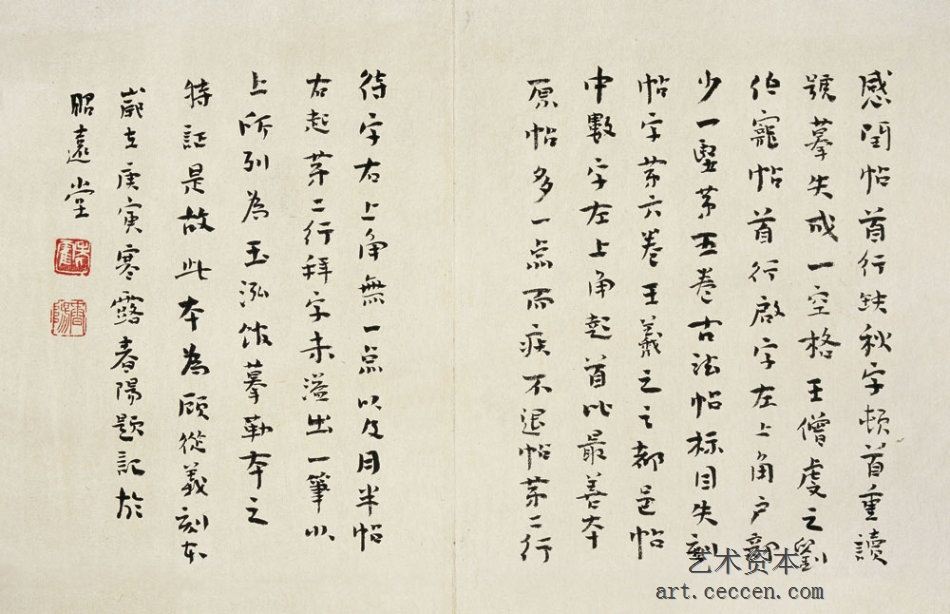 感閏帖首行缺秋字頓首重讀
號摹失成一空格王僧虔之劉
伯寵帖首行啟字左上角户部
少一竪第五卷古法帖标目失刻
帖字第六卷王羲之之都邑帖
中數字左上角起首比最善本
原帖多一点而疾不退帖第二行
待字右上角無一点以及月半帖
右起第二行拜字未溢出一筆以
上所列為玉泓館摹勒本之
特証是故此本為顧從義刻本
歲在庚寅寒露春陽題記於
昭遠堂
艺术资本
art.ceccen.com